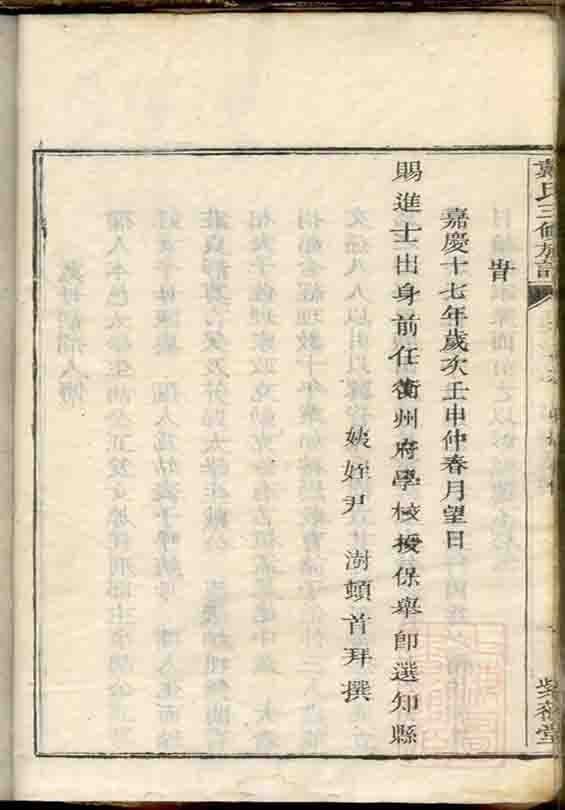 氏三修族譜
堂
旹
嘉慶十七年歲次壬申仲春月望日
賜進士出身前任衡州府學校授保舉即選知縣
姨姪尹 澍頓首拜撰